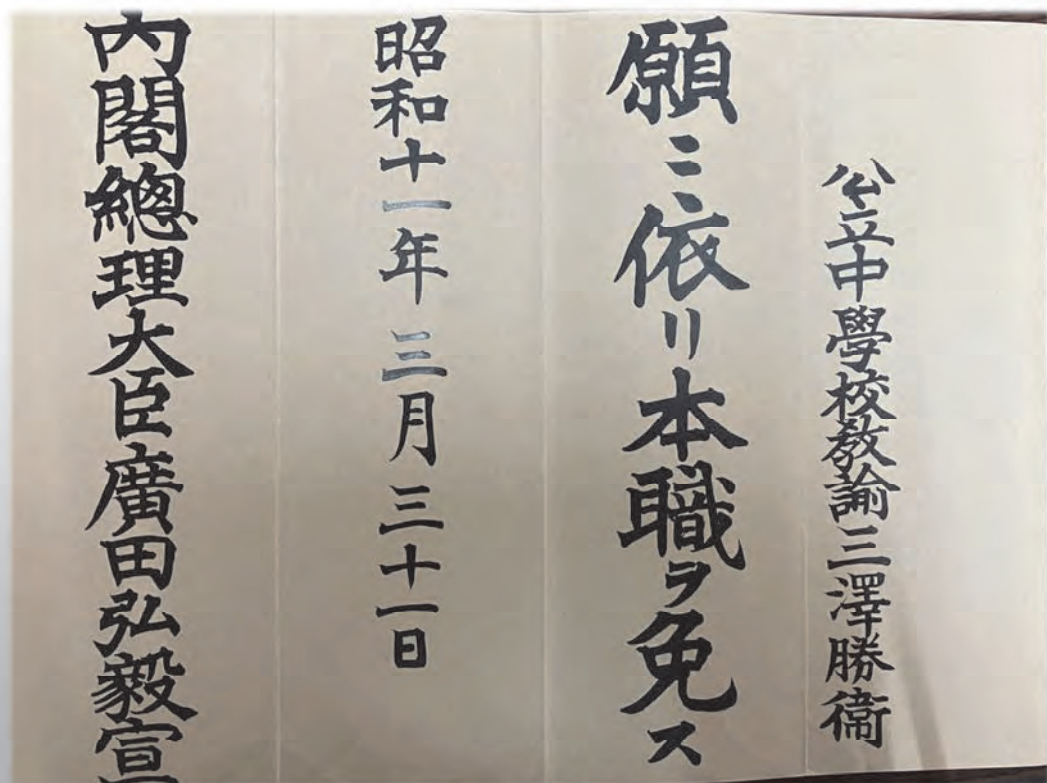 公立中學校教諭三澤勝衞
願ニ依リ本職ヲ免ス
昭和十一年三月三十一日
內閣總理大臣廣田弘毅宣